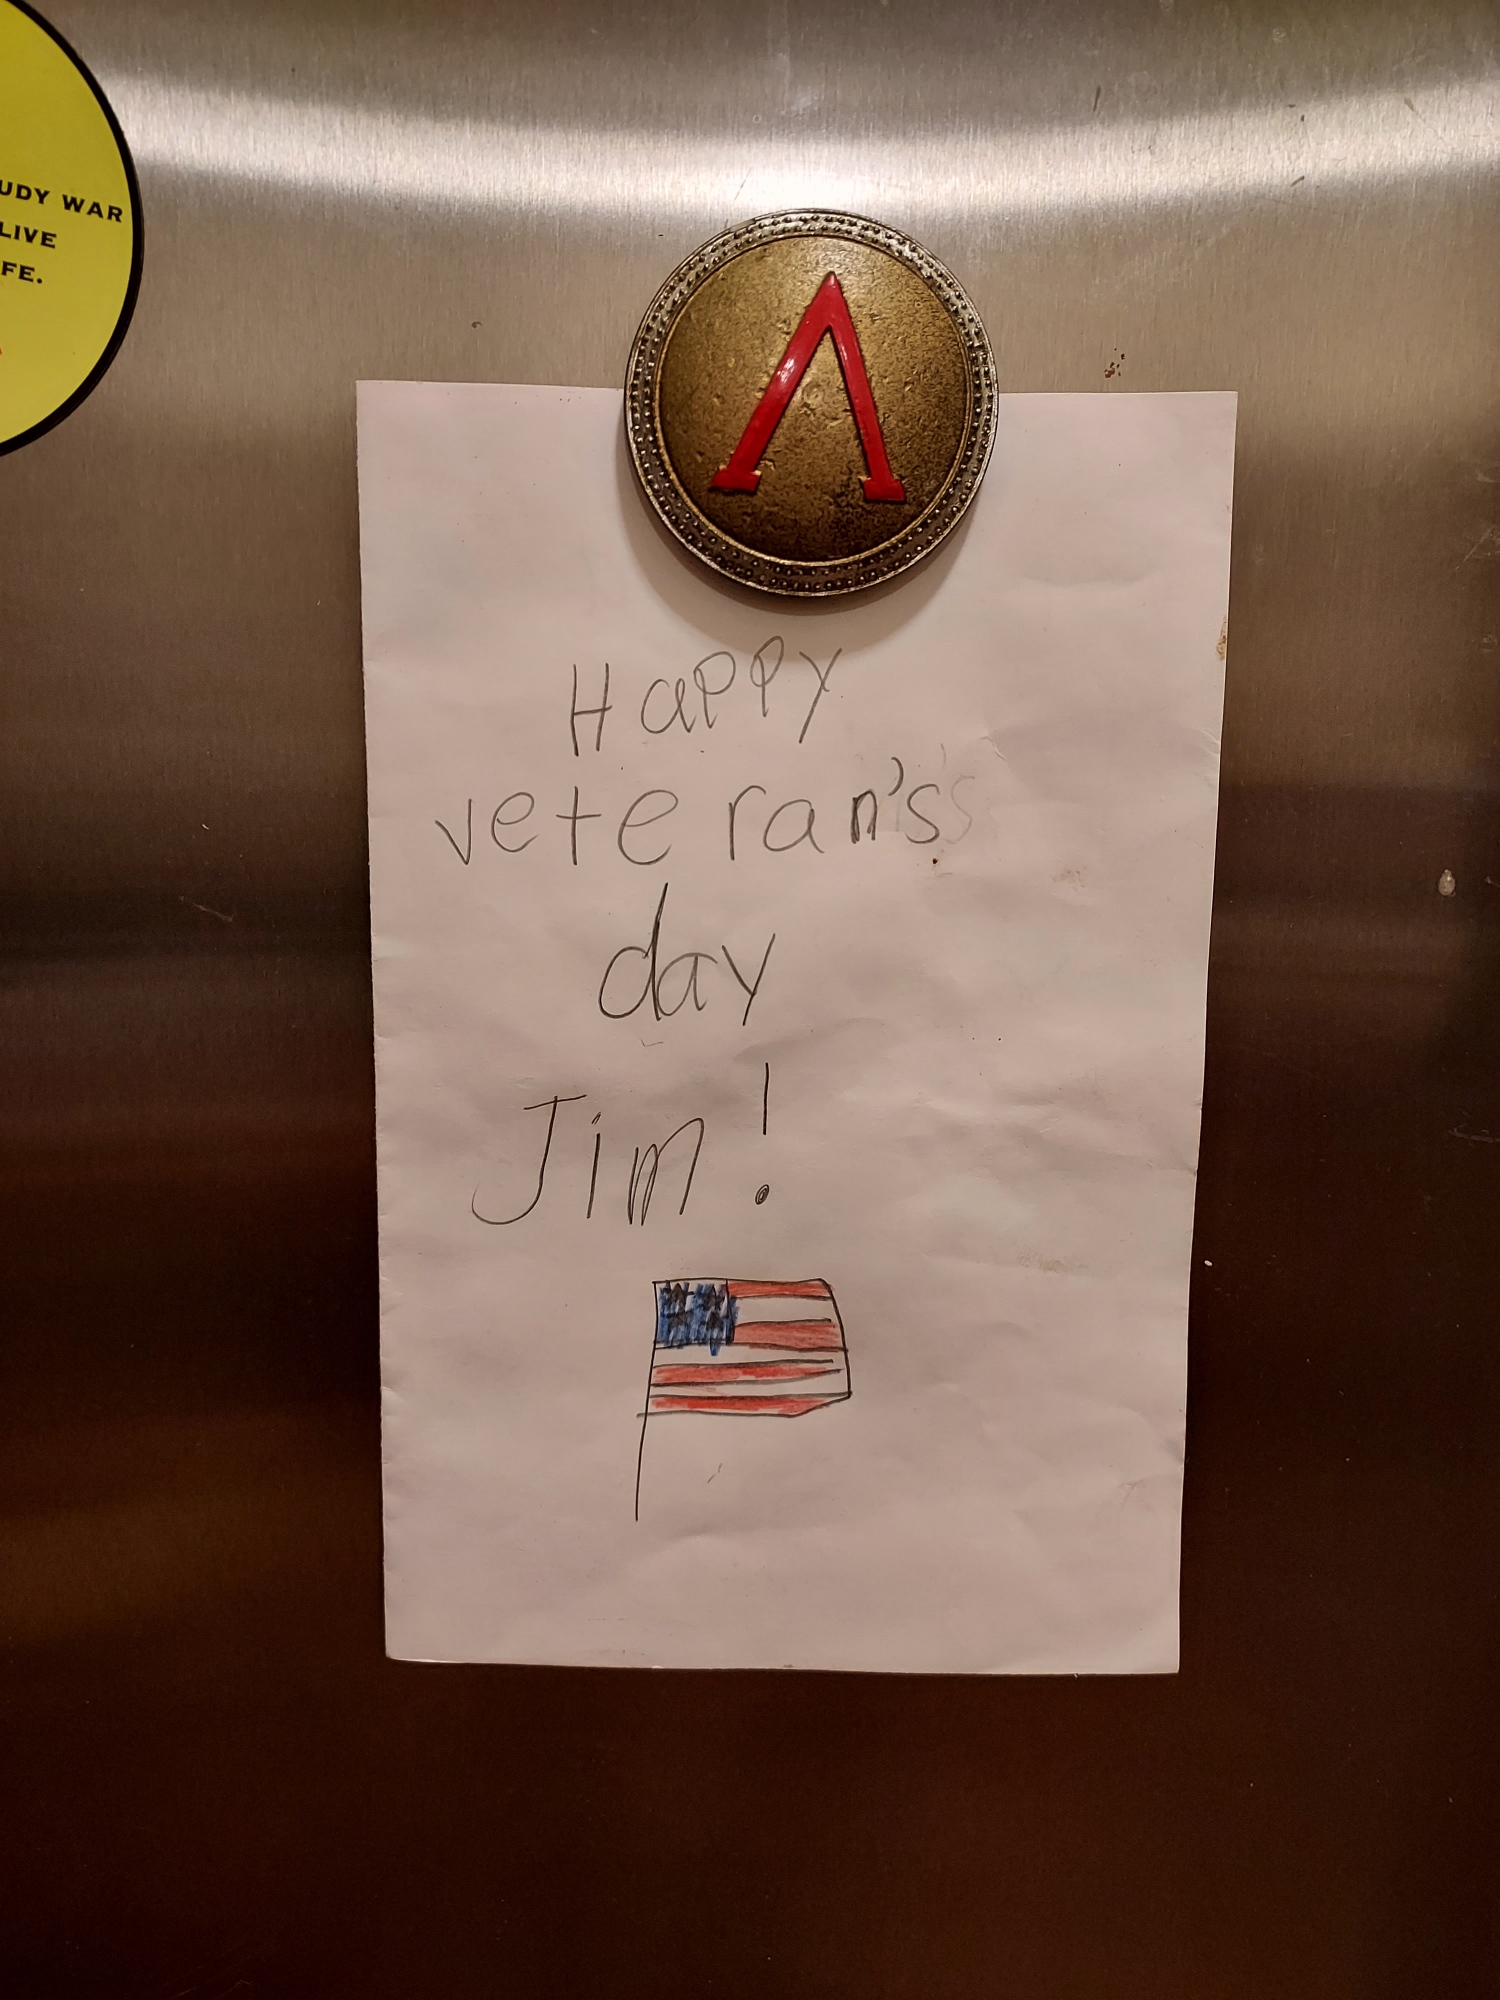 UDY WAR
LIVE
FE.
Λ
Happy
veteran's
day
Jim!